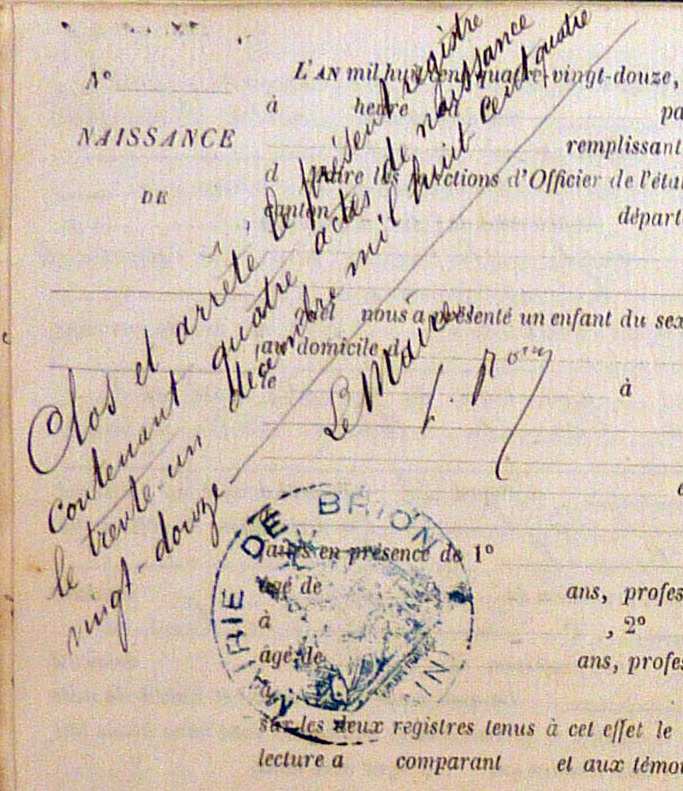 N°
NAISSANCE
DE
L'AN mil huit cent quatre-vingt-douze,
à heure
remplissant
d faire les fonctions d'Officier de l'éta
canton départ
quel nous a présenté un enfant du sex
au domicile d
à
faits en présence de 1°
âgé de ans, profes
à , 2°
âgé de ans, profes
sur les deux registres tenus à cet effet le
lecture a comparant et aux témo
Clos et arrêté le présent registre
contenant quatre actes de naissance
le trente-un decembre mil huit cent quatre
vingt-douze
Le Maire
MAIRIE DE BRION